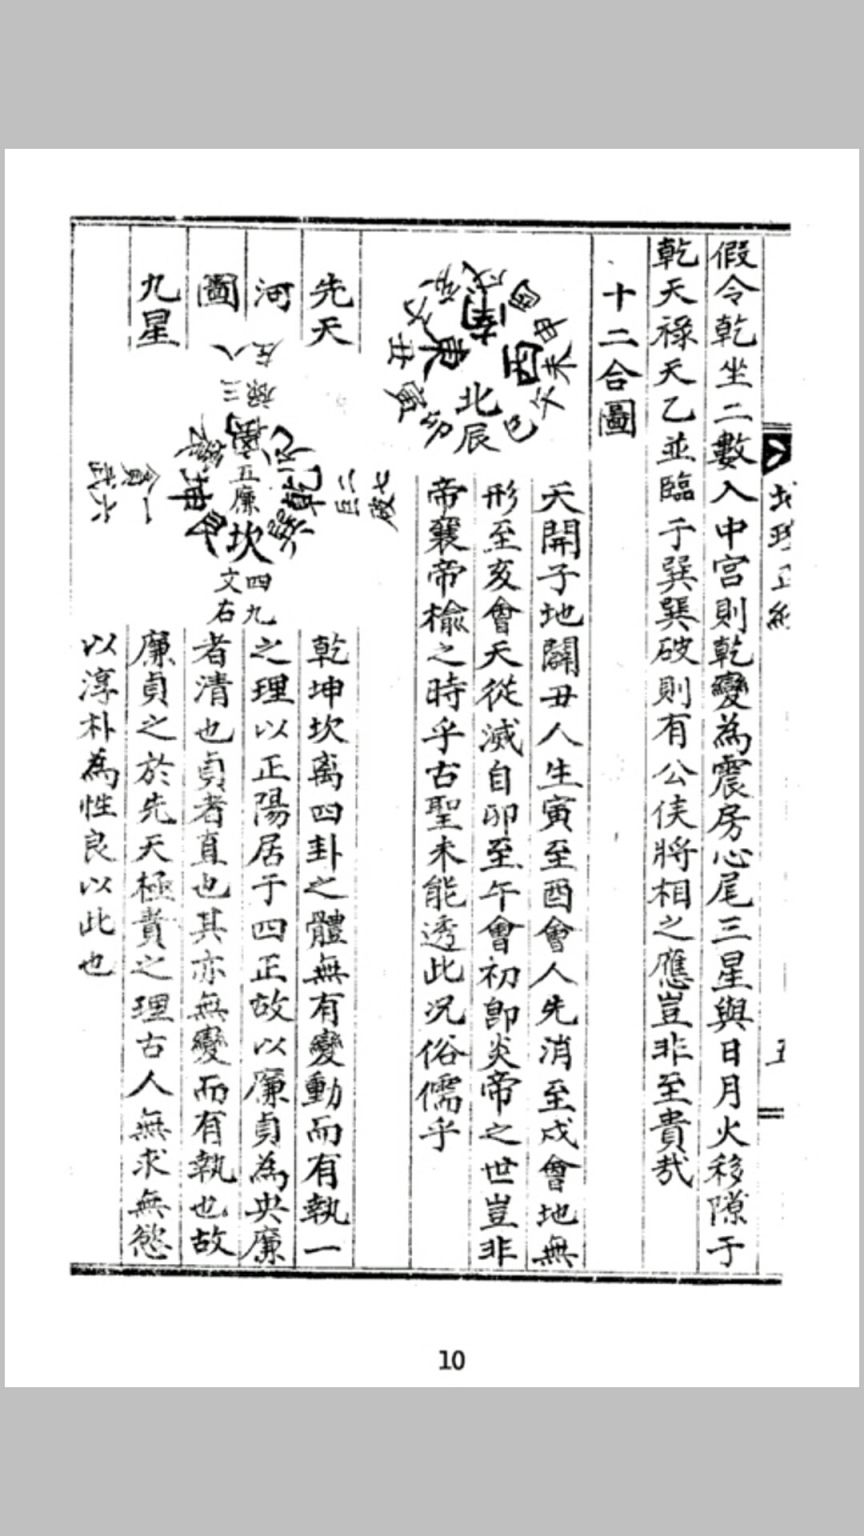 假令乾坐二數入中宮則乾變為震房心尾三星與日月火移隙于
乾天祿天乙並臨于巽巽破則有公侯將相之應豈非至貴哉
十二合圖
南
東
酉
北
戌
酉
申
未
午
巳
辰
卯
寅
丑
子
亥
天開子地闢丑人生寅至酉會人先消至戌會地無
形至亥會天從滅自卯至午會初即炎帝之世豈非
帝襄帝榆之時乎古聖未能透此况俗儒乎
先天
河
圖
九星
左八
祿三
離
五廉
坎
坤
乾
震
艮
巽
兌
一貪
六武
二巨
七破
四文
九右
乾坤坎离四卦之體無有變動而有執一
之理以正陽居于四正故以廉貞為央廉
者清也貞者直也其亦無變而有執也故
廉貞之於先天極貴之理古人無求無慾
以淳朴為性良以此也
10